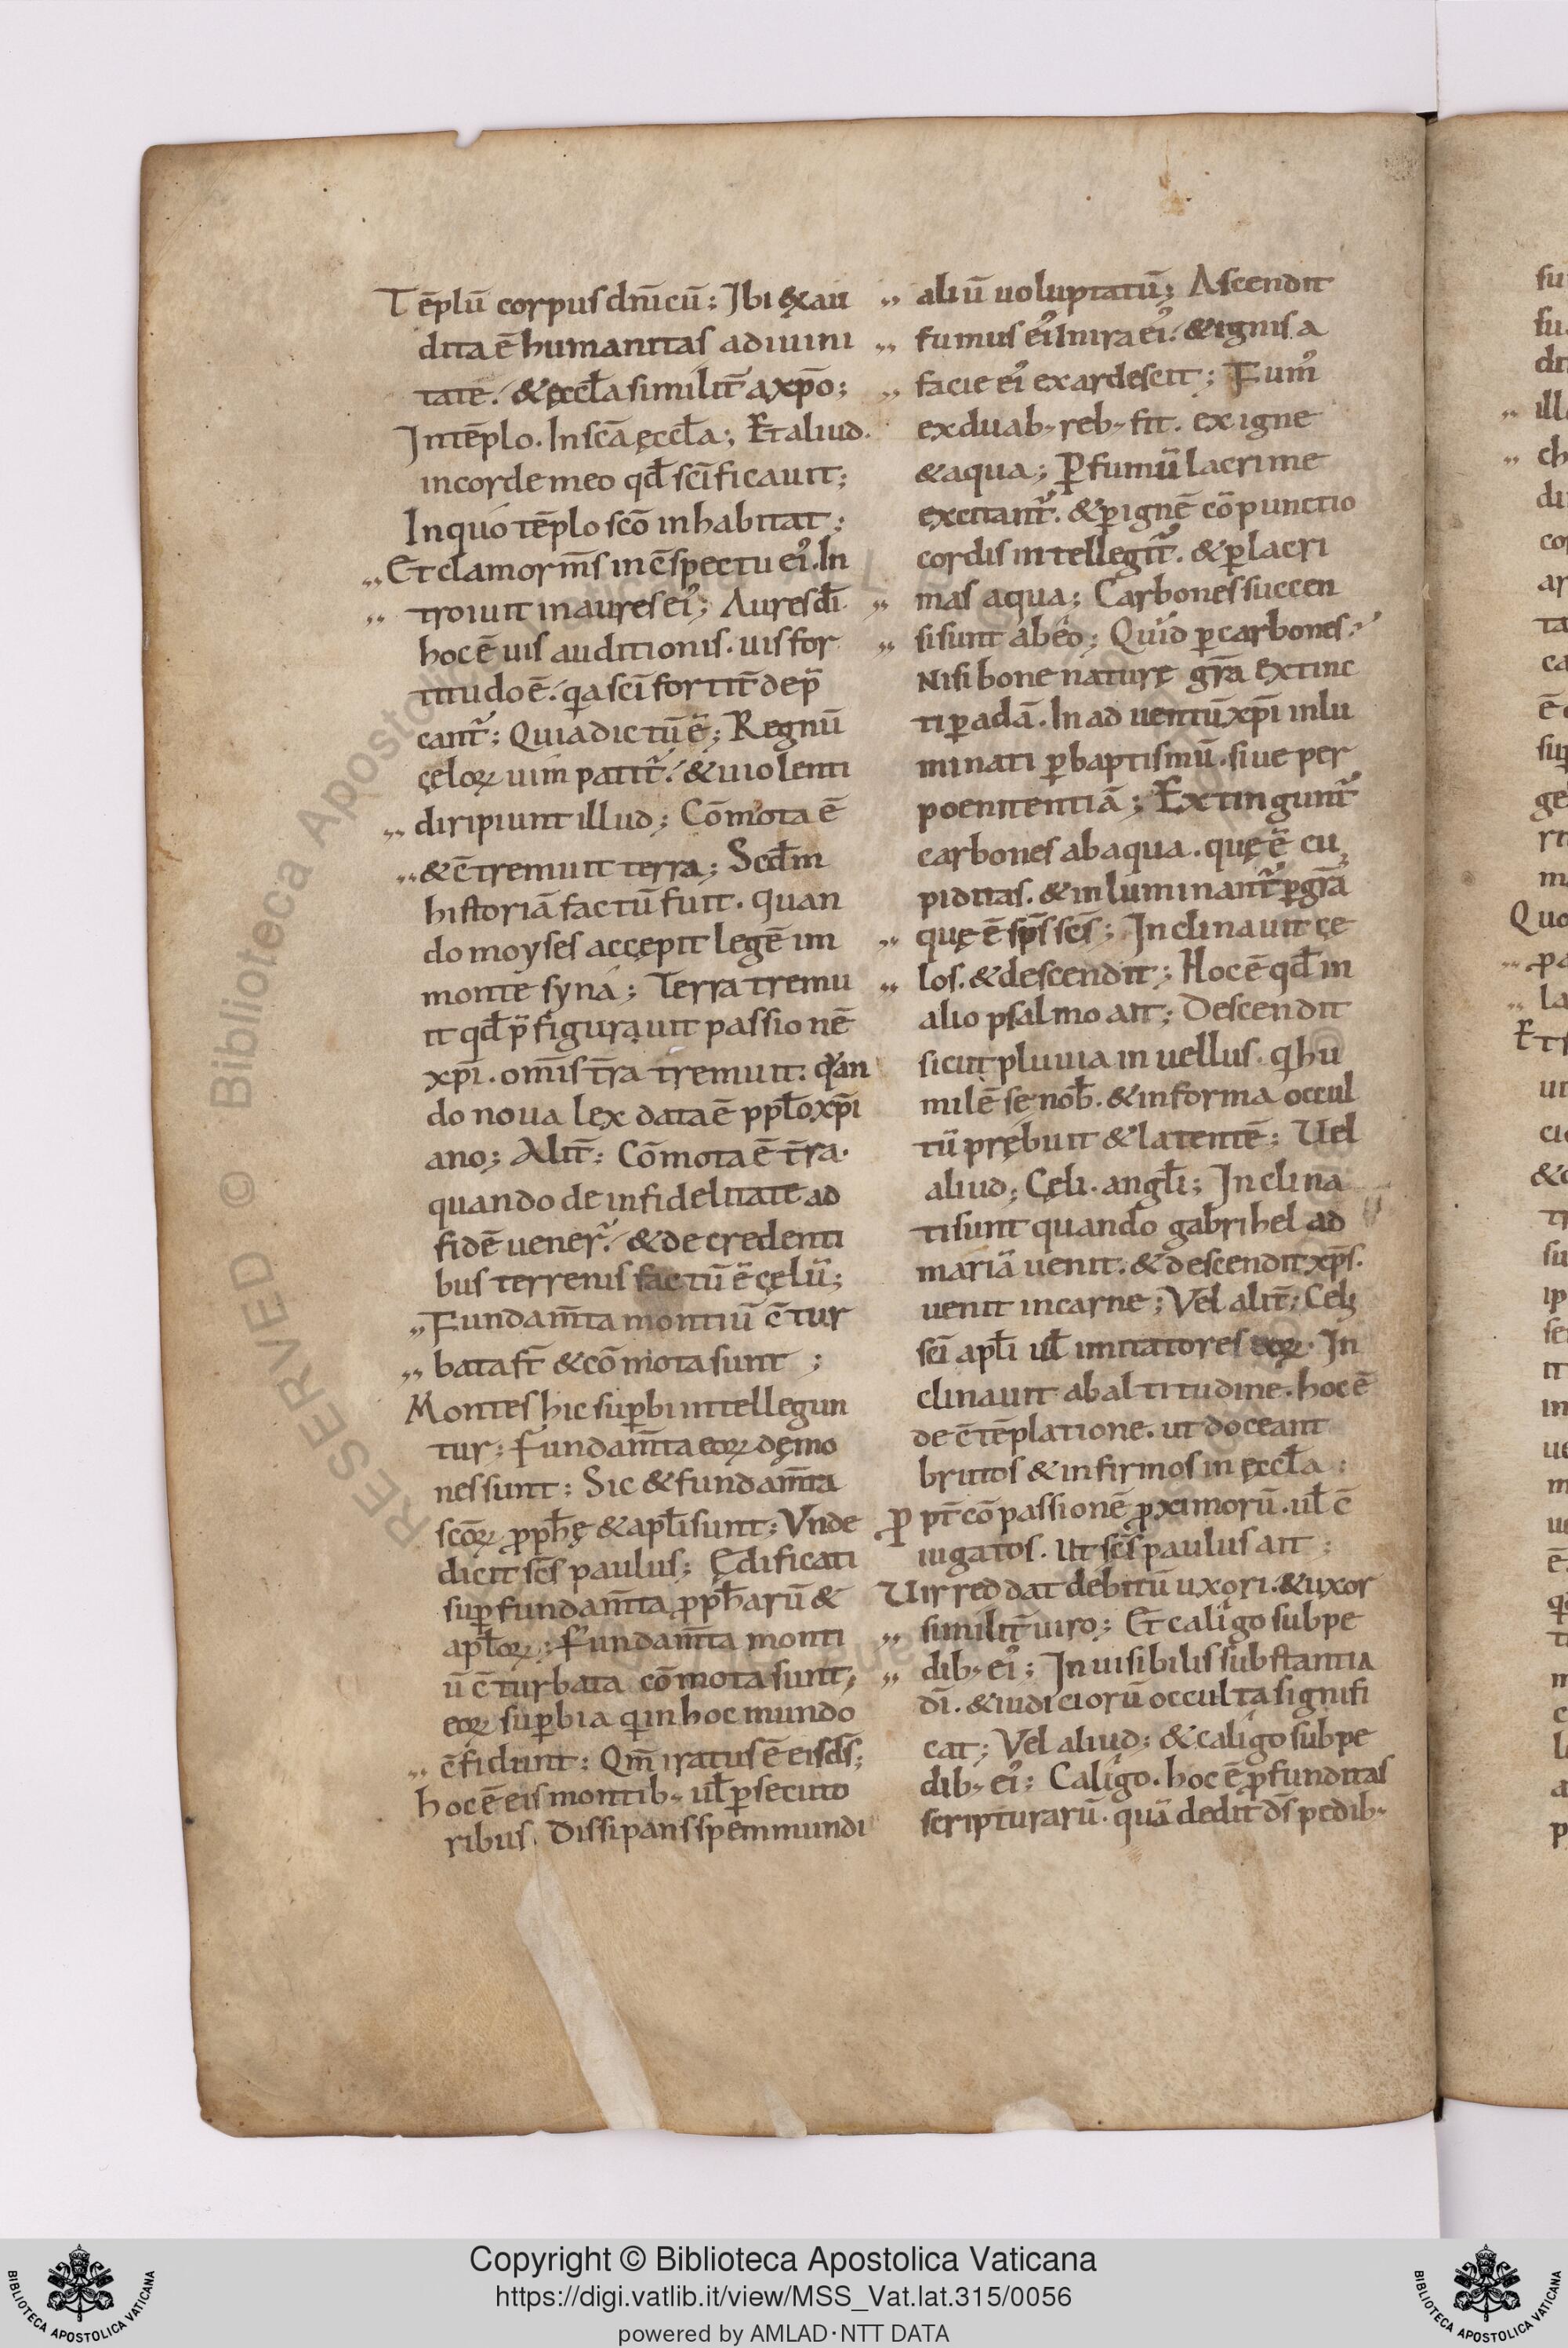 Tēplū corpus dnīcū; Ibi & exau
dita ē humanitas a diuini
tate. & eccƚa similit̄ a xp̄o;
In tēplo. In scā ęccƚa; Et aliud.
in corde meo qđ scīficauit;
In quo tēplo scō inhabitat;
„ Et clamor m̄s in c̄spectu ei᾽. In
„ troiuit in aures ei᾽; Aures dī
hoc ē uis auditionis. uis for
titudo ē. qa scī fortit̄ dep̄
cant᾽; Quia dictū ē; Regnū
cęloꝝ uim patit᾽. & uiolenti
„ diripiunt illud; Cōmota ē
„ & c̄tremuit terra; Scđm
historiā factū fuit. quan
do moyses accępit legē im
monte syna; Terra tremu
it qđ p̄figurauit passionē
xp̄i. omīs t̄ra tremuit. quan
do noua lex data ē ppƚo xp̄i
ano; Alit̄; Cōmota ē t̄ra.
quando de infidelitate ad
fidē uener᾽. & de credenti
bus terrenis factū ē cęlū;
„ Fundam̄ta montiū c̄tur
„ bata st̄ & cōmota sunt;
Montes hic suꝑbi intellegun
tur; fundam̄ta eoꝝ dęmo
nes sunt; Sic & fundam̄ta
scōꝝ ꝓpħę & apƚi sunt; Vnde
dicit scs̄ paulus; Ędificati
suꝑ fundam̄ta ꝓpħarū &
apƚoꝝ; Fundam̄ta monti
ū c̄turbata cōmota sunt;
eoꝝ suꝑbia qui in hoc mundo
„ c̄fidunt; Qm̄ iratus ē eis ds̄;
hoc ē eis montib; uƚ ꝑsecuto
ribus. Dissipans spem mundi
„ aliū uoluptatū; Ascendit
„ fumus ei᾽ In ira ei᾽. & ignis a
„ facie ei᾽ exardescit; Fum᾽
ex duab; reb; fit. ex igne
& aqua; Ꝑ fumū lacrime
excitant᾽. & ꝑ ignē cōpunctio
cordis intellegit᾽. & ꝑ lacri
„ mas aqua; Carbones succen
„ si sunt ab eo; Quid ꝑ carbones.
Nisi bone naturę gr̄a extinc
ti ꝑ adā. In aduentū xp̄i inlu
minati ꝑ baptismū. siue per
poenitentiā; Extingunt᾽
carbones ab aqua. quę ē cu
piditas. & inluminant᾽ ꝑ gr̄ā
„ quę ē sp̄s scs̄; Inclinauit cę
„ los. & descendit; Hoc ē qđ in
alio psalmo ait; Descendit
sicut pluuia in uellus. q hu
milē se nob̄. & in forma occul
tū prębuit & latentē; Vel
aliud; Cęli. angƚi; Inclina
ti sunt quando gabrihel ad
mariā uenit. & descendit xp̄s.
uenit in carne; Vel alit̄; Celi
scī apƚi uƚ imitatores eoꝝ. In
clinauit ab altitudine. hoc ē
de c̄tēplatione. ut doceant
brutos & infirmos in ęccƚa;
Ꝓpt̄ cōpassionē ꝓximorū. uƚ c̄
iugatos. Ut scs̄ paulus ait;
Uir reddat debitū uxori. & uxor
„ similit̄ uiro; Et caligo sub pe
„ dib; ei᾽; Inuisibilis substantia
dī. & iudiciorū occulta signifi
cat; Vel aliud; & caligo sub pe
dib; ei᾽; Caligo. hoc ē ꝓfunditas
scripturarū. quā dedit ds̄ pedib;
Copyright © Biblioteca Apostolica Vaticana
https://digi.vatlib.it/view/MSS_Vat.lat.315/0056
powered by AMLAD·NTT DATA
BIBLIOTECA APOSTOLICA VATICANA
BIBLIOTECA APOSTOLICA VATICANA